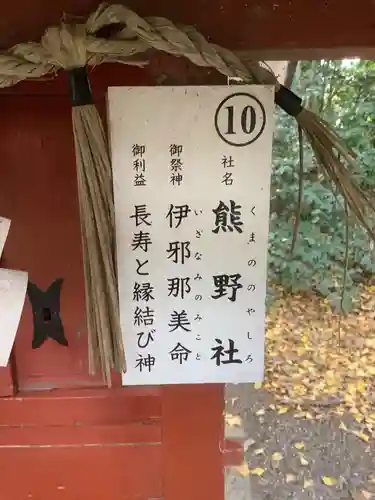 ⑩
社名
熊野社
くまののやしろ
御祭神
伊邪那美命
いざなみのみこと
御利益
長寿と縁結び神